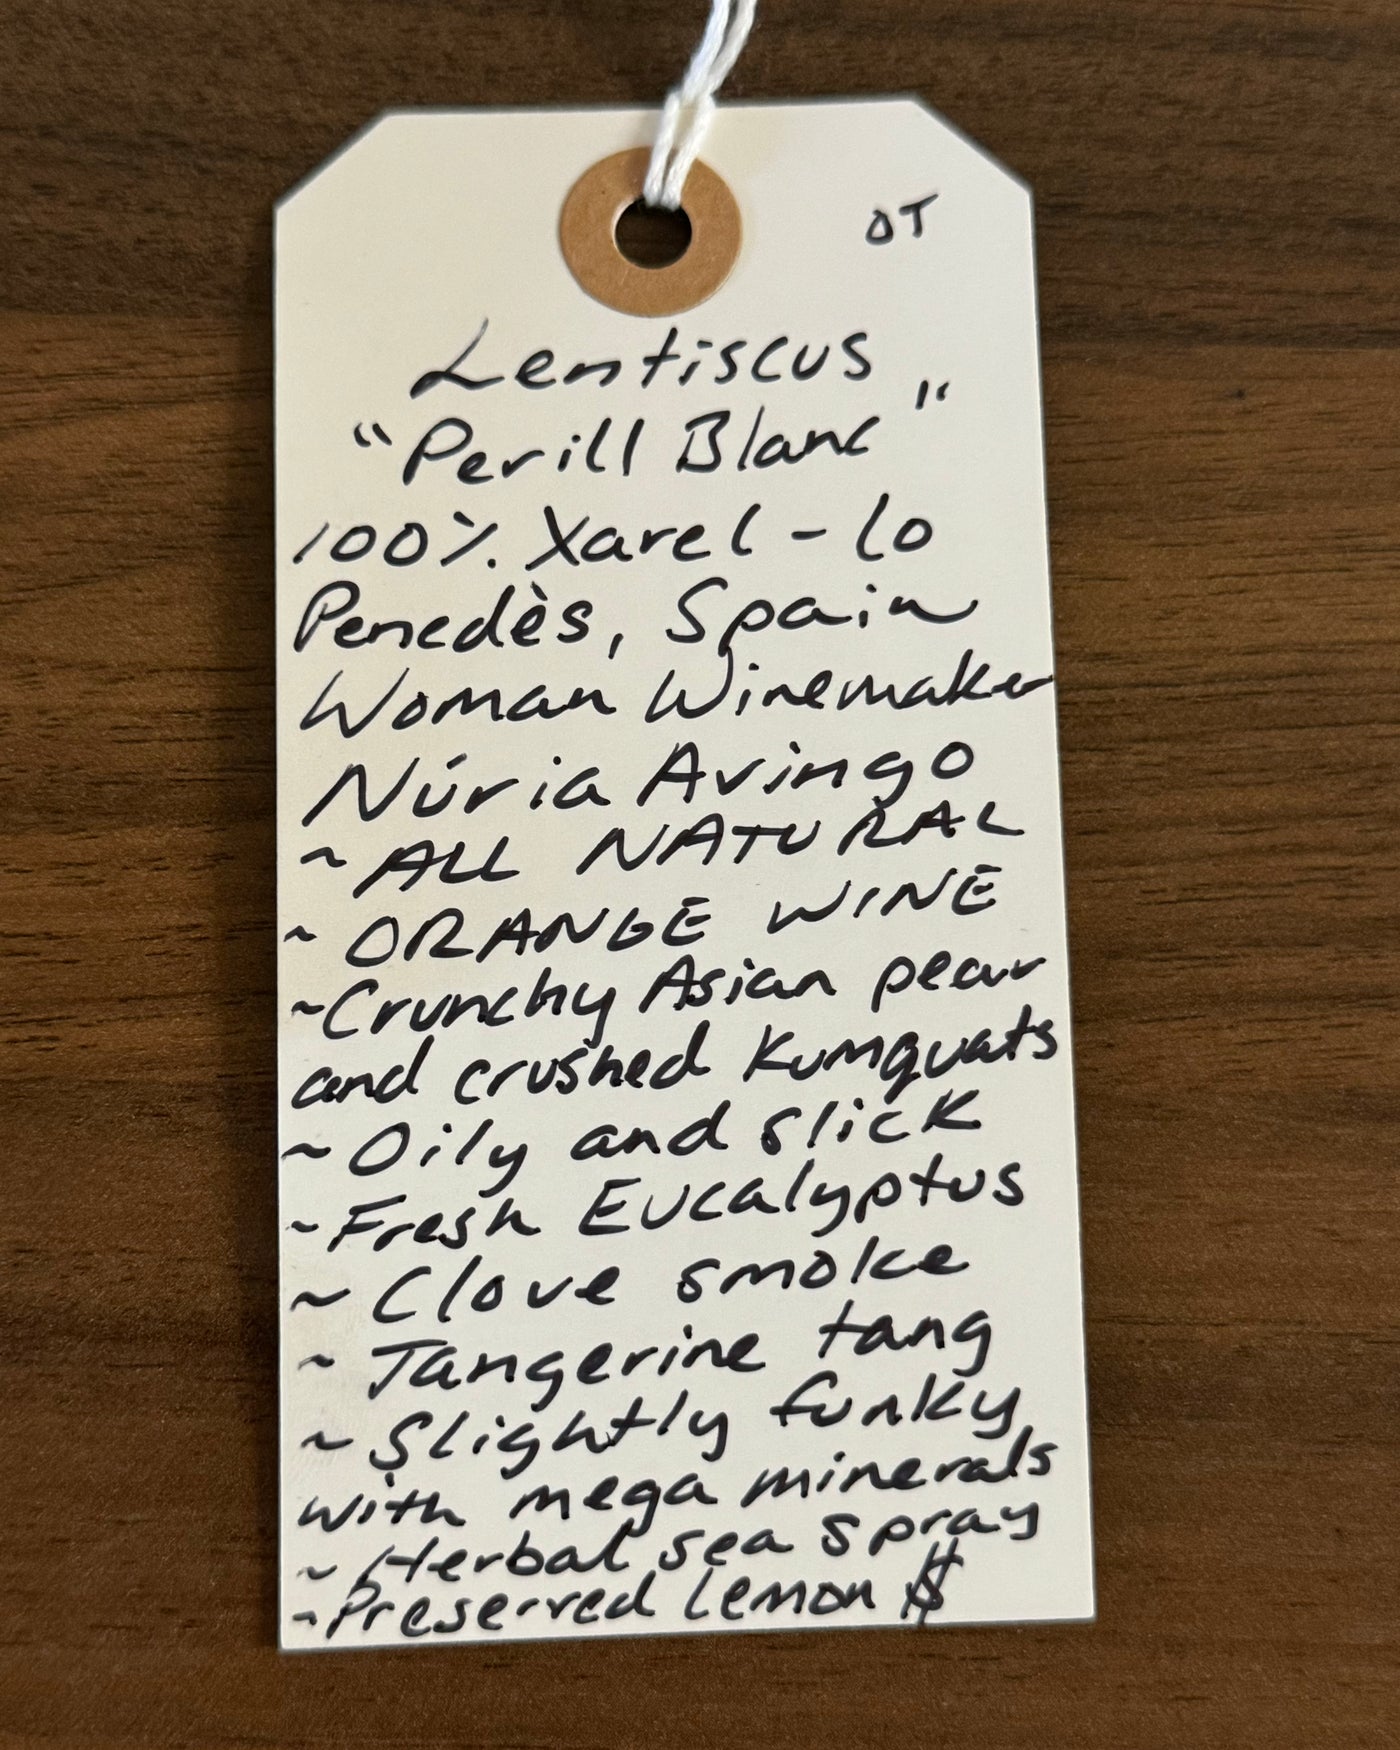 OT
Lentiscus
"Perill Blanc"
100% Xarel-lo
Penedès, Spain
Woman Winemaker
Núria Avingo
~ ALL NATURAL
~ ORANGE WINE
~Crunchy Asian pear
and crushed Kumquats
~ Oily and slick
~ Fresh Eucalyptus
~ Clove smoke
~ Tangerine tang
~ Slightly funky
with mega minerals
~ Herbal sea spray
~Preserved Lemon $